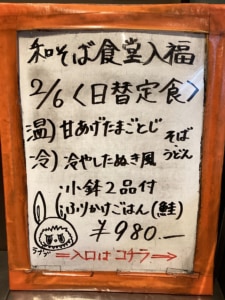 和そば食堂入福
2/6〈日替定食〉
温)甘あげたまごとじ そば
冷)冷やしたぬき風 うどん
小鉢2品付
ふりかけごはん(鮭)
¥980.—
ライブ
⇒入口はコチラ→